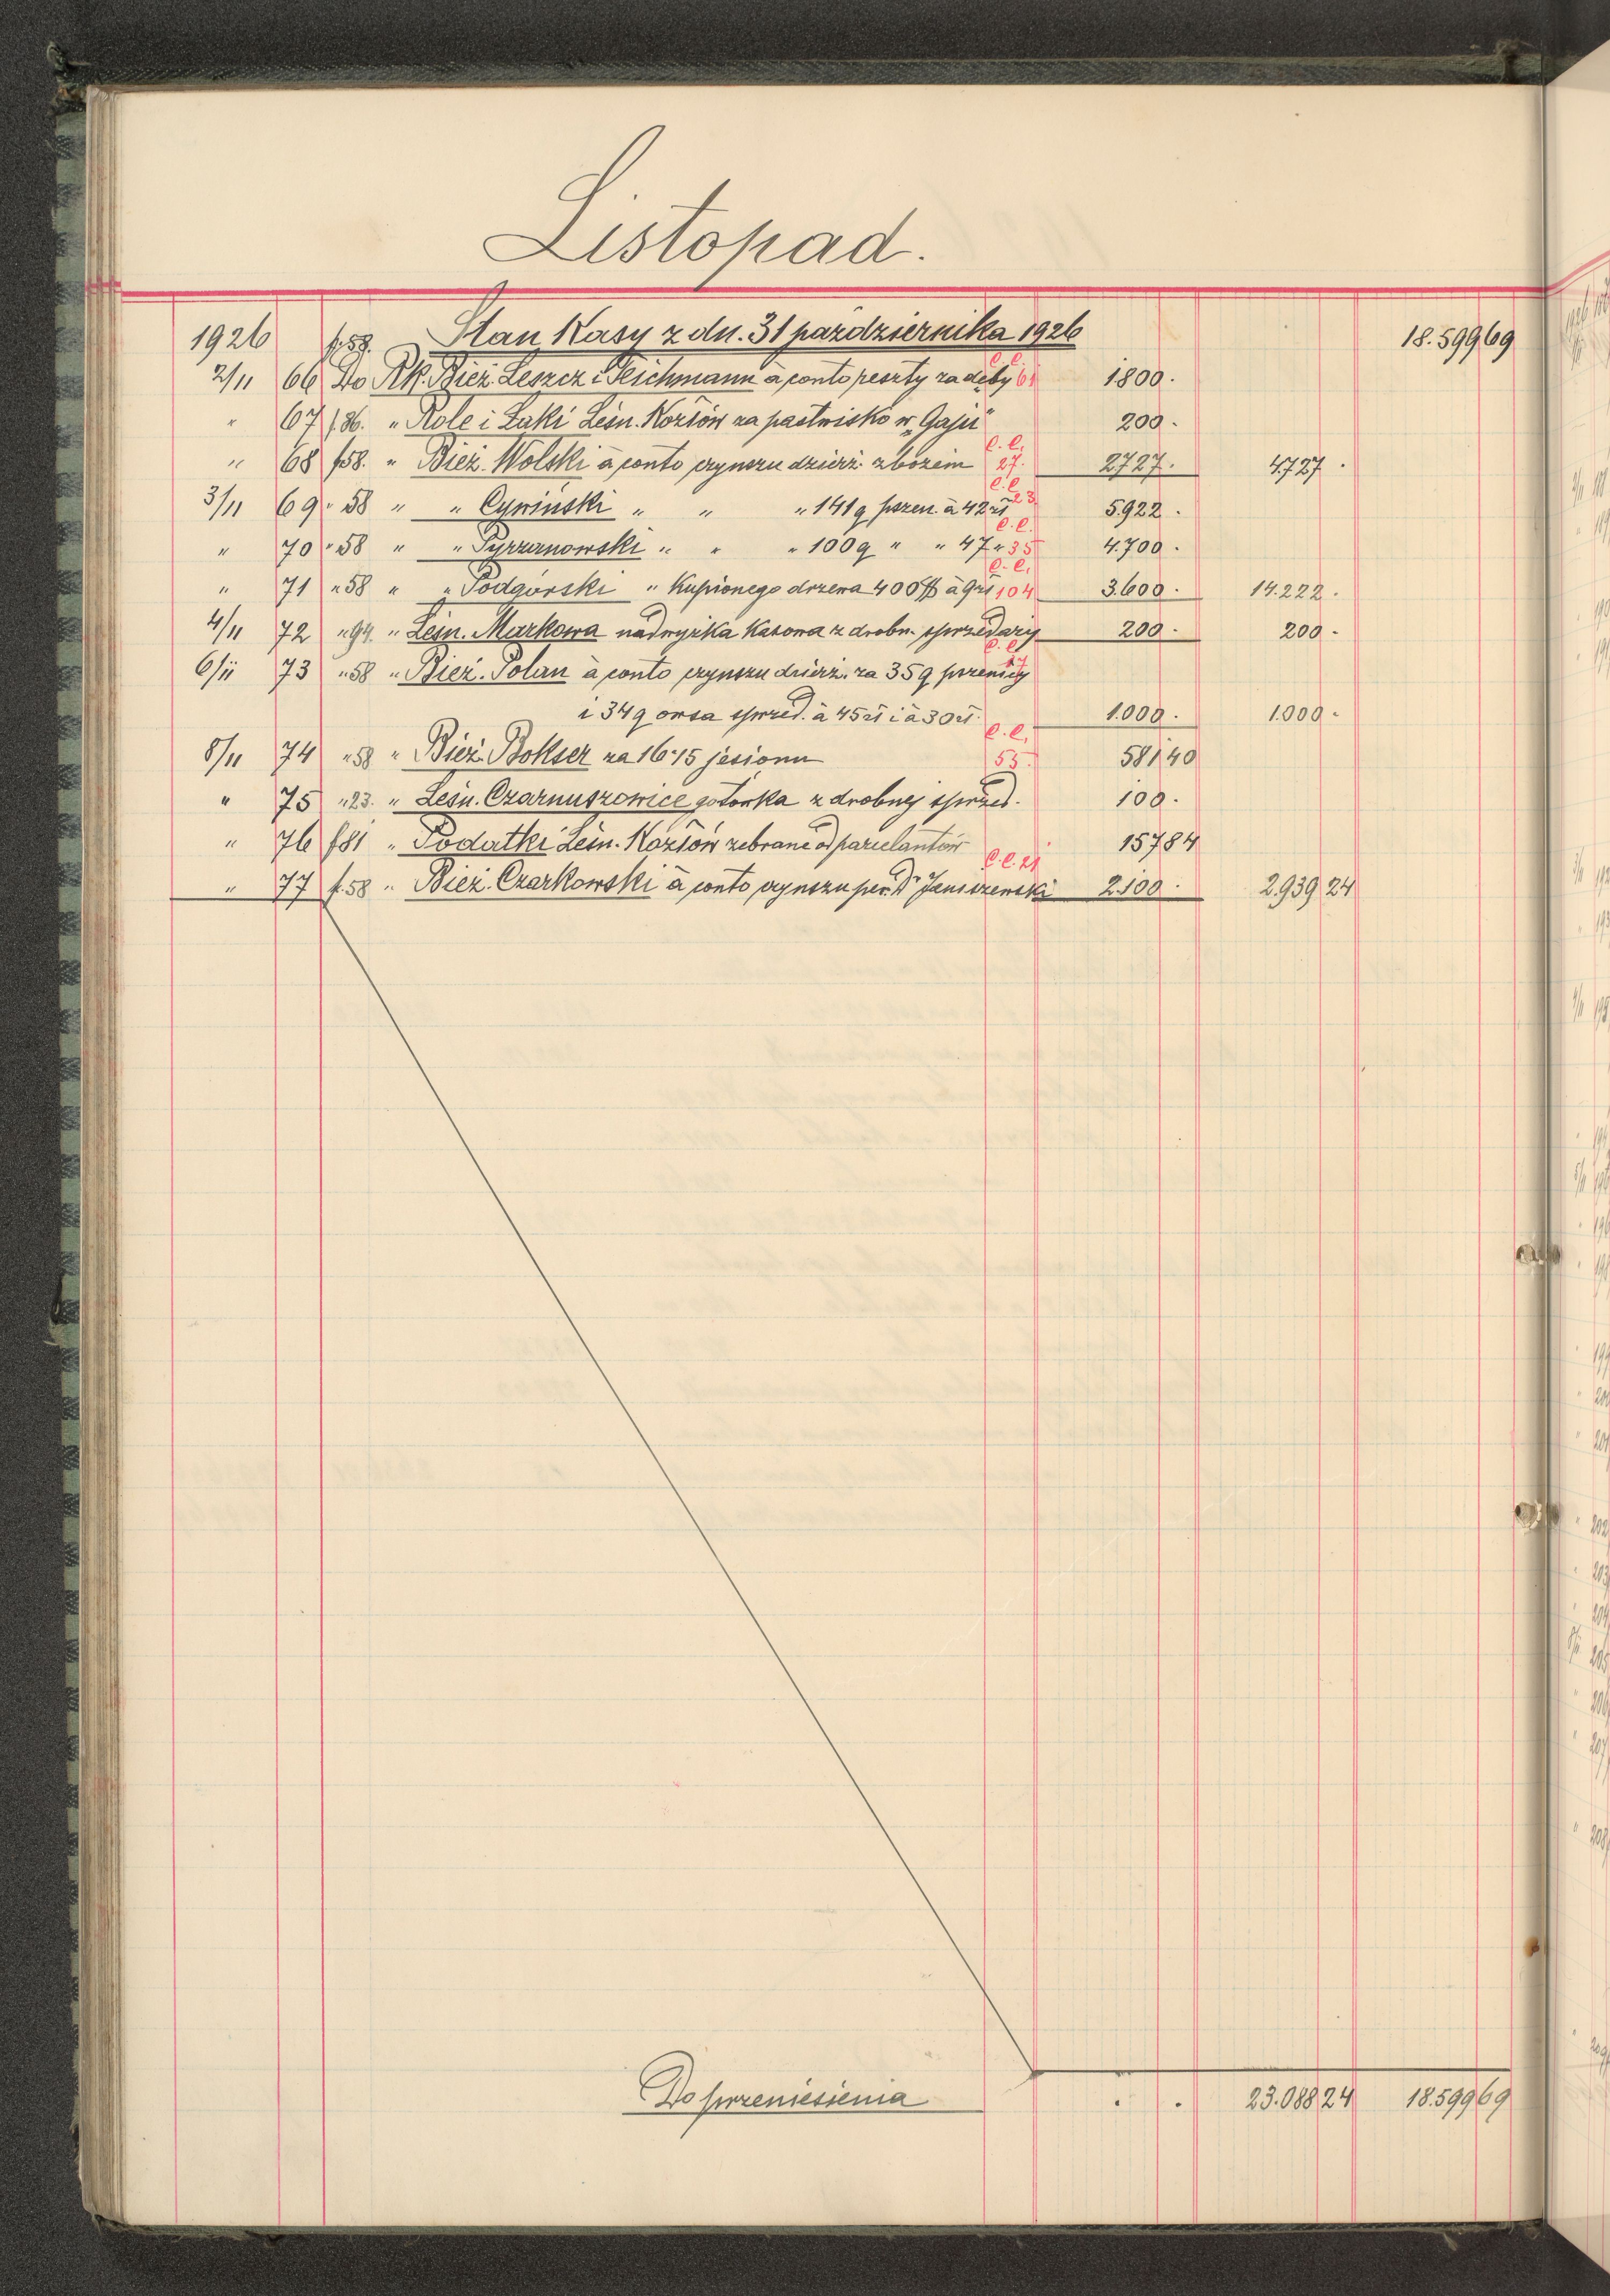 Listopad.
1926 f. 59. Stan Kasy z dn. 31 października 1926 18.599 69
2/11 66 Do Rk. Bież. Leszcz i Teichmann à conto reszty za dęby 61 1800.
" 67 f 36. " Role i Łąki Leśn. Kozłów za pastwisko w „Gaju" 200.
" 68 f 58. " Bież. Wolski à conto czynszu dzierż. zbożem c.c. 27. 2727. 4727.
3/11 69 " 58 " " Cywiński " " " 141 q pszen. à 42 zł c.c. 23 5.922.
" 70 " 58 " " " " " 100 q " " 47 " c.c. 35 4.700.
" 71 " 58 " " Podgórski " Kupionego drzewa 400 à 9 zł c.c. 104 3.600. 14.222.
4/11 72 " 94. " Leśn. Markowa nadwyżka Kasowa z drobn. sprzedaży 200. 200.
6/11 73 " 58 " Bież. Polan à conto czynszu dzierż. za 35 q pszenicy
i 34 q owsa sprzed. à 45 zł i à 30 zł 1.000. 1.000.
8/11 74 " 58 " Bież. Bokser za 16.15 jesionu c.c. 55. 581 40
" 75 " 23. " Leśn. Czarnuszowice gotówka z drobnej sprzed. 100.
" 76 f 81 " Podatki Leśn. Kozłów zebrane od parcelantów 157 84
" 77 f. 58 " Bież. Czarkowski à conto czynszu per Dr Januszewski c.c. 21 2.100. 2.939 24
Do przeniesienia . . 23.088 24 18.599 69